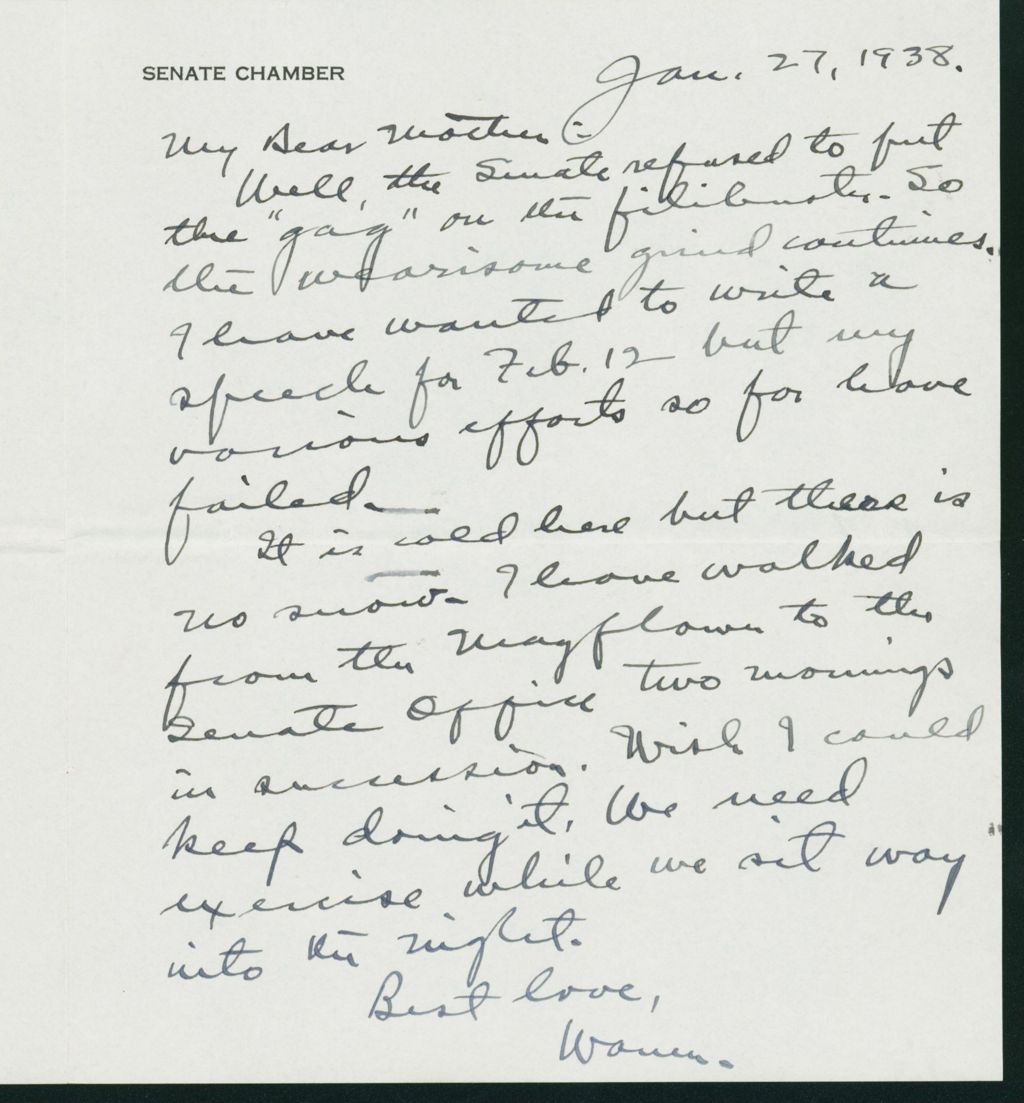 SENATE CHAMBER
Jan. 27, 1938.
My Dear Mother :-
Well, the Senate refused to put
the "gag" on the filibuster. So
the wearisome grind continues.
I have wanted to write a
speech for Feb. 12 but my
various efforts so far have
failed.
It is cold here but there is
no snow. I have walked
from the Mayflower to the
Senate Office two mornings
in succession. Wish I could
keep doing it. We need
exercise while we sit way
into the night.
Best love,
Warren.